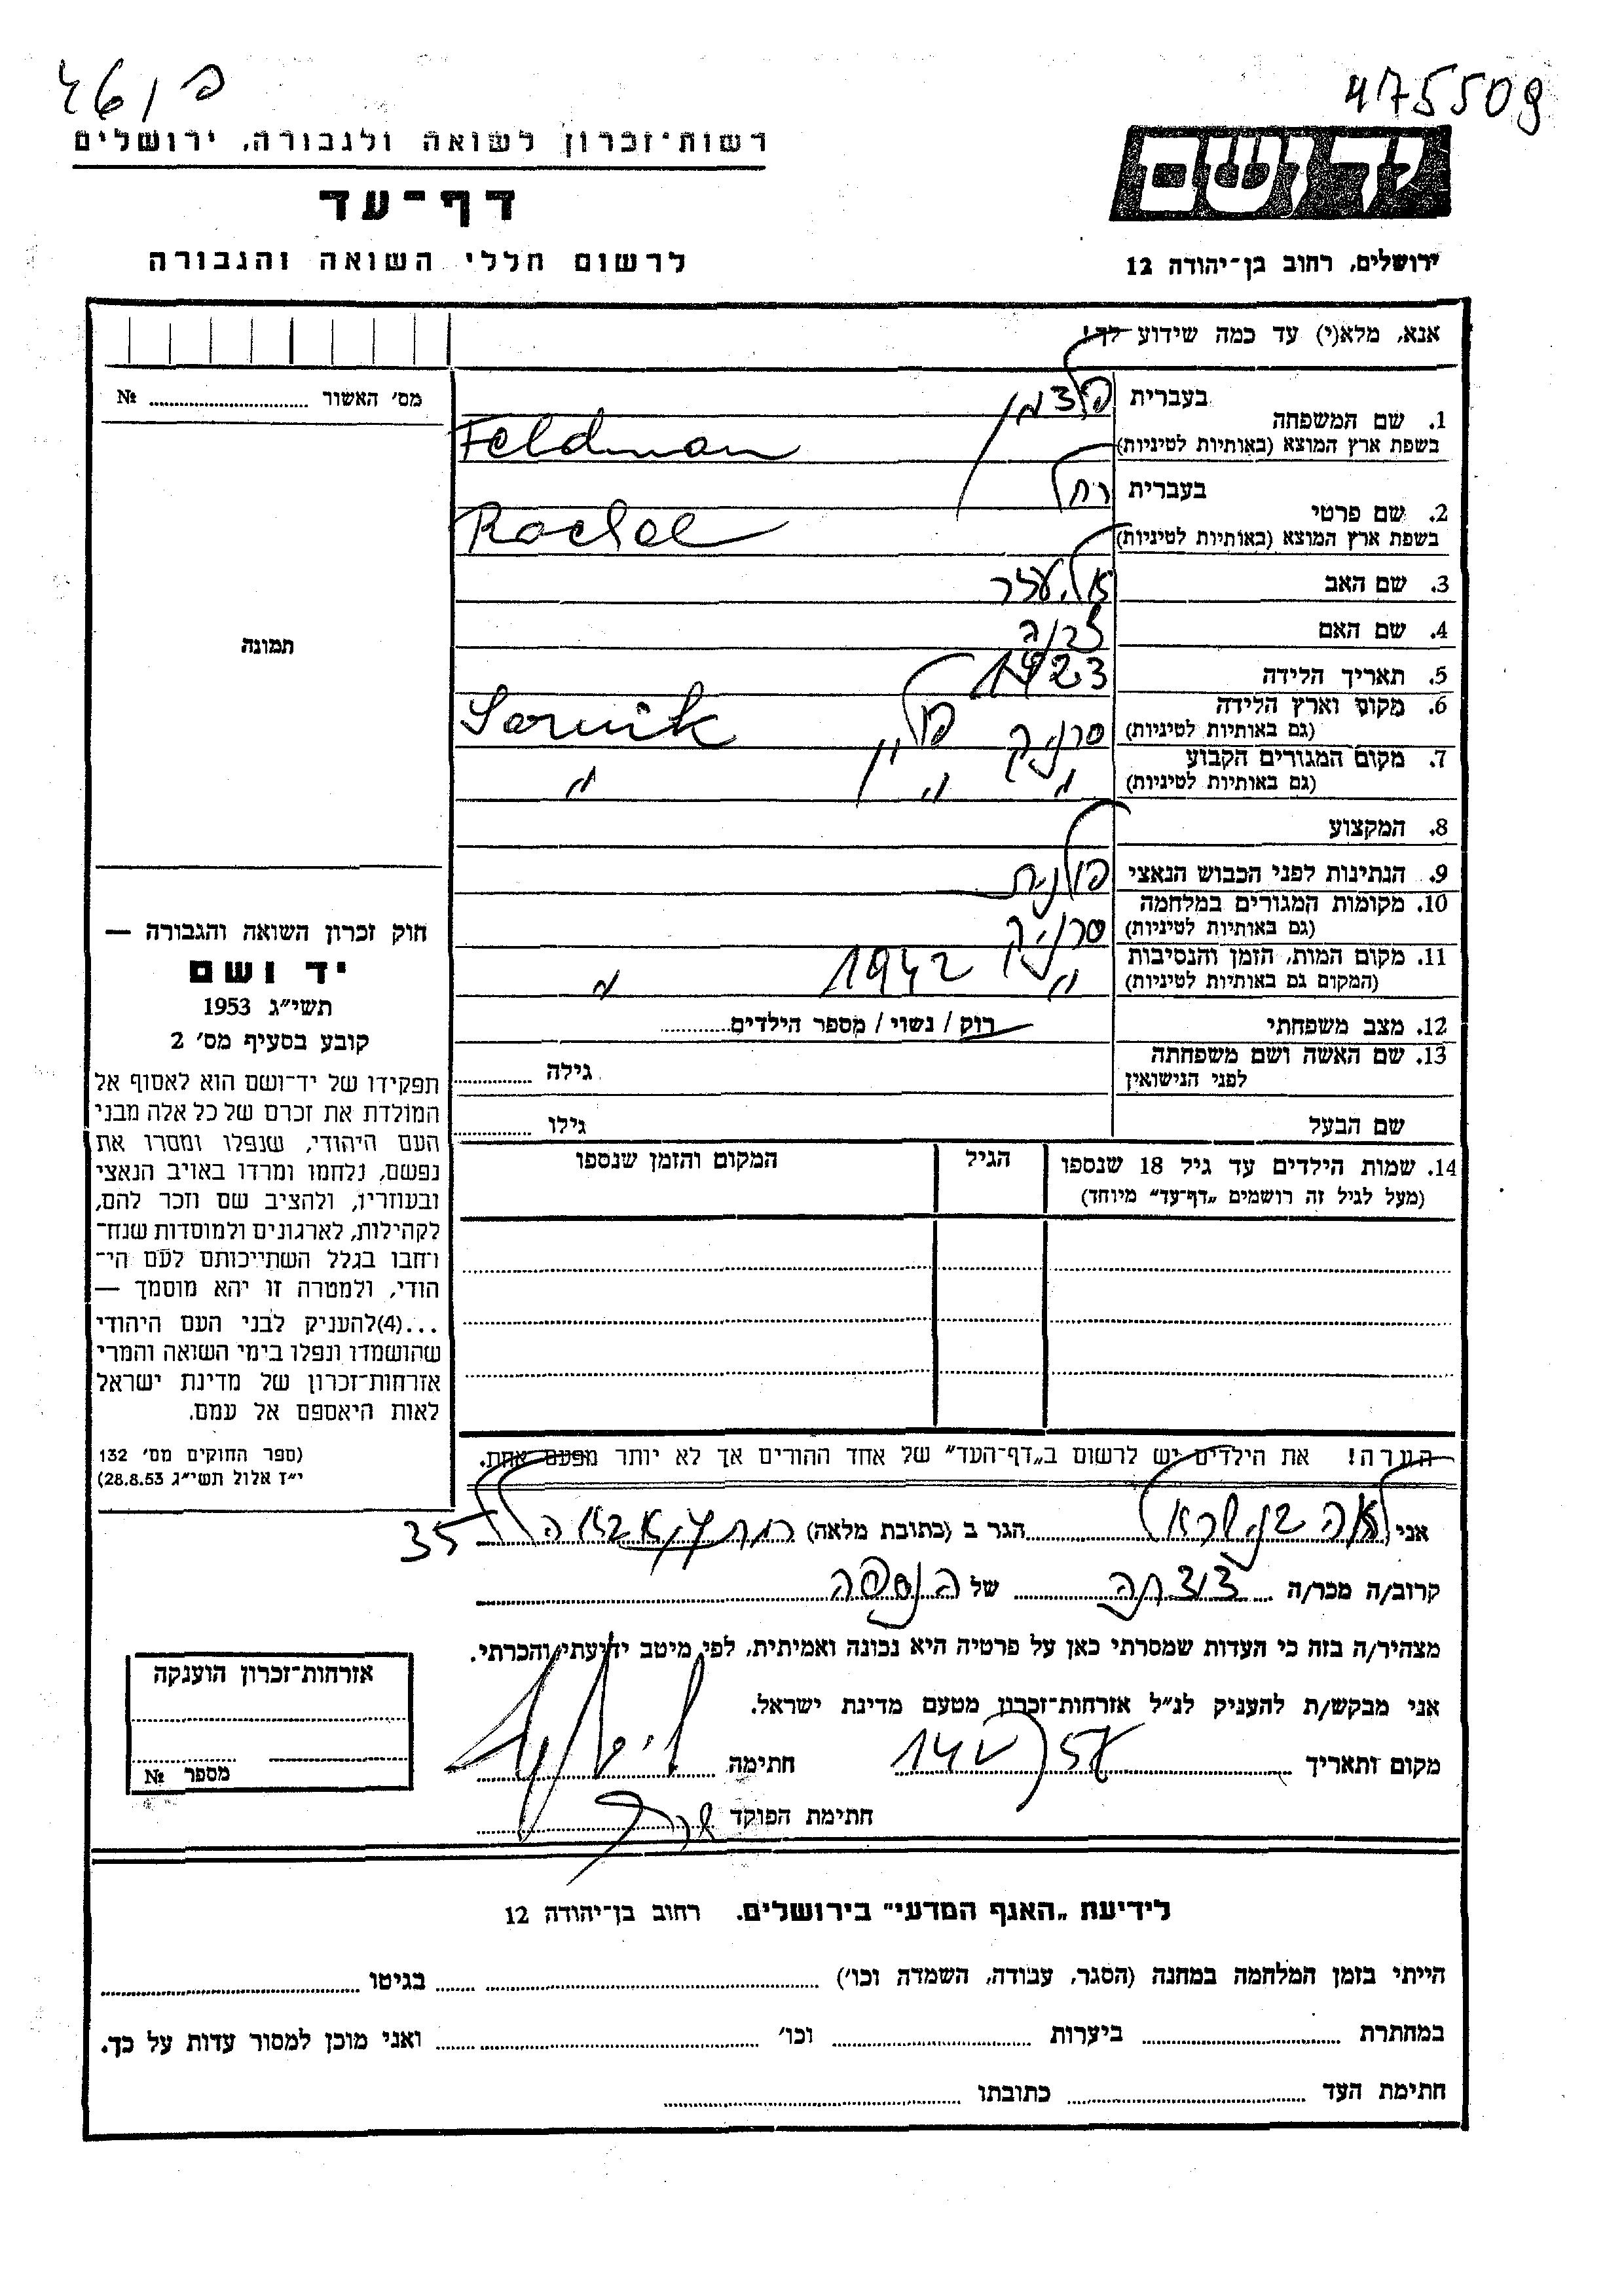 475509
פ 461
רשות־זכרון לשואה ולגבורה, ירושלים
יד ושם
דף־עד
לרשום חללי השואה והגבורה
ירושלים, רחוב בן־יהודה 12
אנא, מלא(י) עד כמה שידוע לך!
מס׳ האשור ........ №
1. שם המשפחה בעברית פלדמן
בשפת ארץ המוצא (באותיות לטיניות) Feldman
2. שם פרטי בעברית רחל
בשפת ארץ המוצא (באותיות לטיניות) Rachel
3. שם האב אליעזר
4. שם האם
5. תאריך הלידה 1923
6. מקום וארץ הלידה (גם באותיות לטיניות) סרניק פולין Sernik
7. מקום המגורים הקבוע (גם באותיות לטיניות) " " "
8. המקצוע
9. הנתינות לפני הכבוש הנאצי פולנית
10. מקומות המגורים במלחמה (גם באותיות לטיניות) סרניק
11. מקום המות, הזמן והנסיבות (המקום גם באותיות לטיניות) " 1942 "
12. מצב משפחתי רוק / נשוי / מספר הילדים........
13. שם האשה ושם משפחתה לפני הנישואין גילה ........
שם הבעל גילו ........
14. שמות הילדים עד גיל 18 שנספו
(מעל לגיל זה רושמים „דף־עד״ מיוחד)
הגיל
המקום והזמן שנספו
תמונה
חוק זכרון השואה והגבורה —
יד ושם
תשי״ג 1953
קובע בסעיף מס׳ 2
תפקידו של יד־ושם הוא לאסוף אל
המולדת את זכרם של כל אלה מבני
העם היהודי, שנפלו ומסרו את
נפשם, נלחמו ומרדו באויב הנאצי
ובעוזריו, ולהציב שם וזכר להם,
לקהילות, לארגונים ולמוסדות שנח־
רחבו בגלל השתייכותם לעם הי־
הודי, ולמטרה זו יהא מוסמך —
...(4)להעניק לבני העם היהודי
שהושמדו ונפלו בימי השואה והמרי
אזרחות־זכרון של מדינת ישראל
לאות היאספם אל עמם.
(ספר החוקים מס׳ 132
י״ז אלול תשי״ג 28.8.53)
הערה! את הילדים יש לרשום ב„דף־העד״ של אחד ההורים אך לא יותר מפעם אחת.
אני הגר ב (כתובת מלאה) 35
קרוב/ה מכר/ה של הנספה
מצהיר/ה בזה כי העדות שמסרתי כאן על פרטיה היא נכונה ואמיתית, לפי מיטב ידיעתי והכרתי.
אני מבקש/ת להעניק לנ״ל אזרחות־זכרון מטעם מדינת ישראל.
מקום ותאריך חתימה
חתימת הפוקד
אזרחות־זכרון הוענקה
מספר №
לידיעת „האגף המדעי״ בירושלים. רחוב בן־יהודה 12
הייתי בזמן המלחמה במחנה (הסגר, עבודה, השמדה וכו׳) ........ בגיטו ........
במחתרת ........ ביערות ........ וכו׳ ........ ואני מוכן למסור עדות על כך.
חתימת העד ........ כתובתו ........